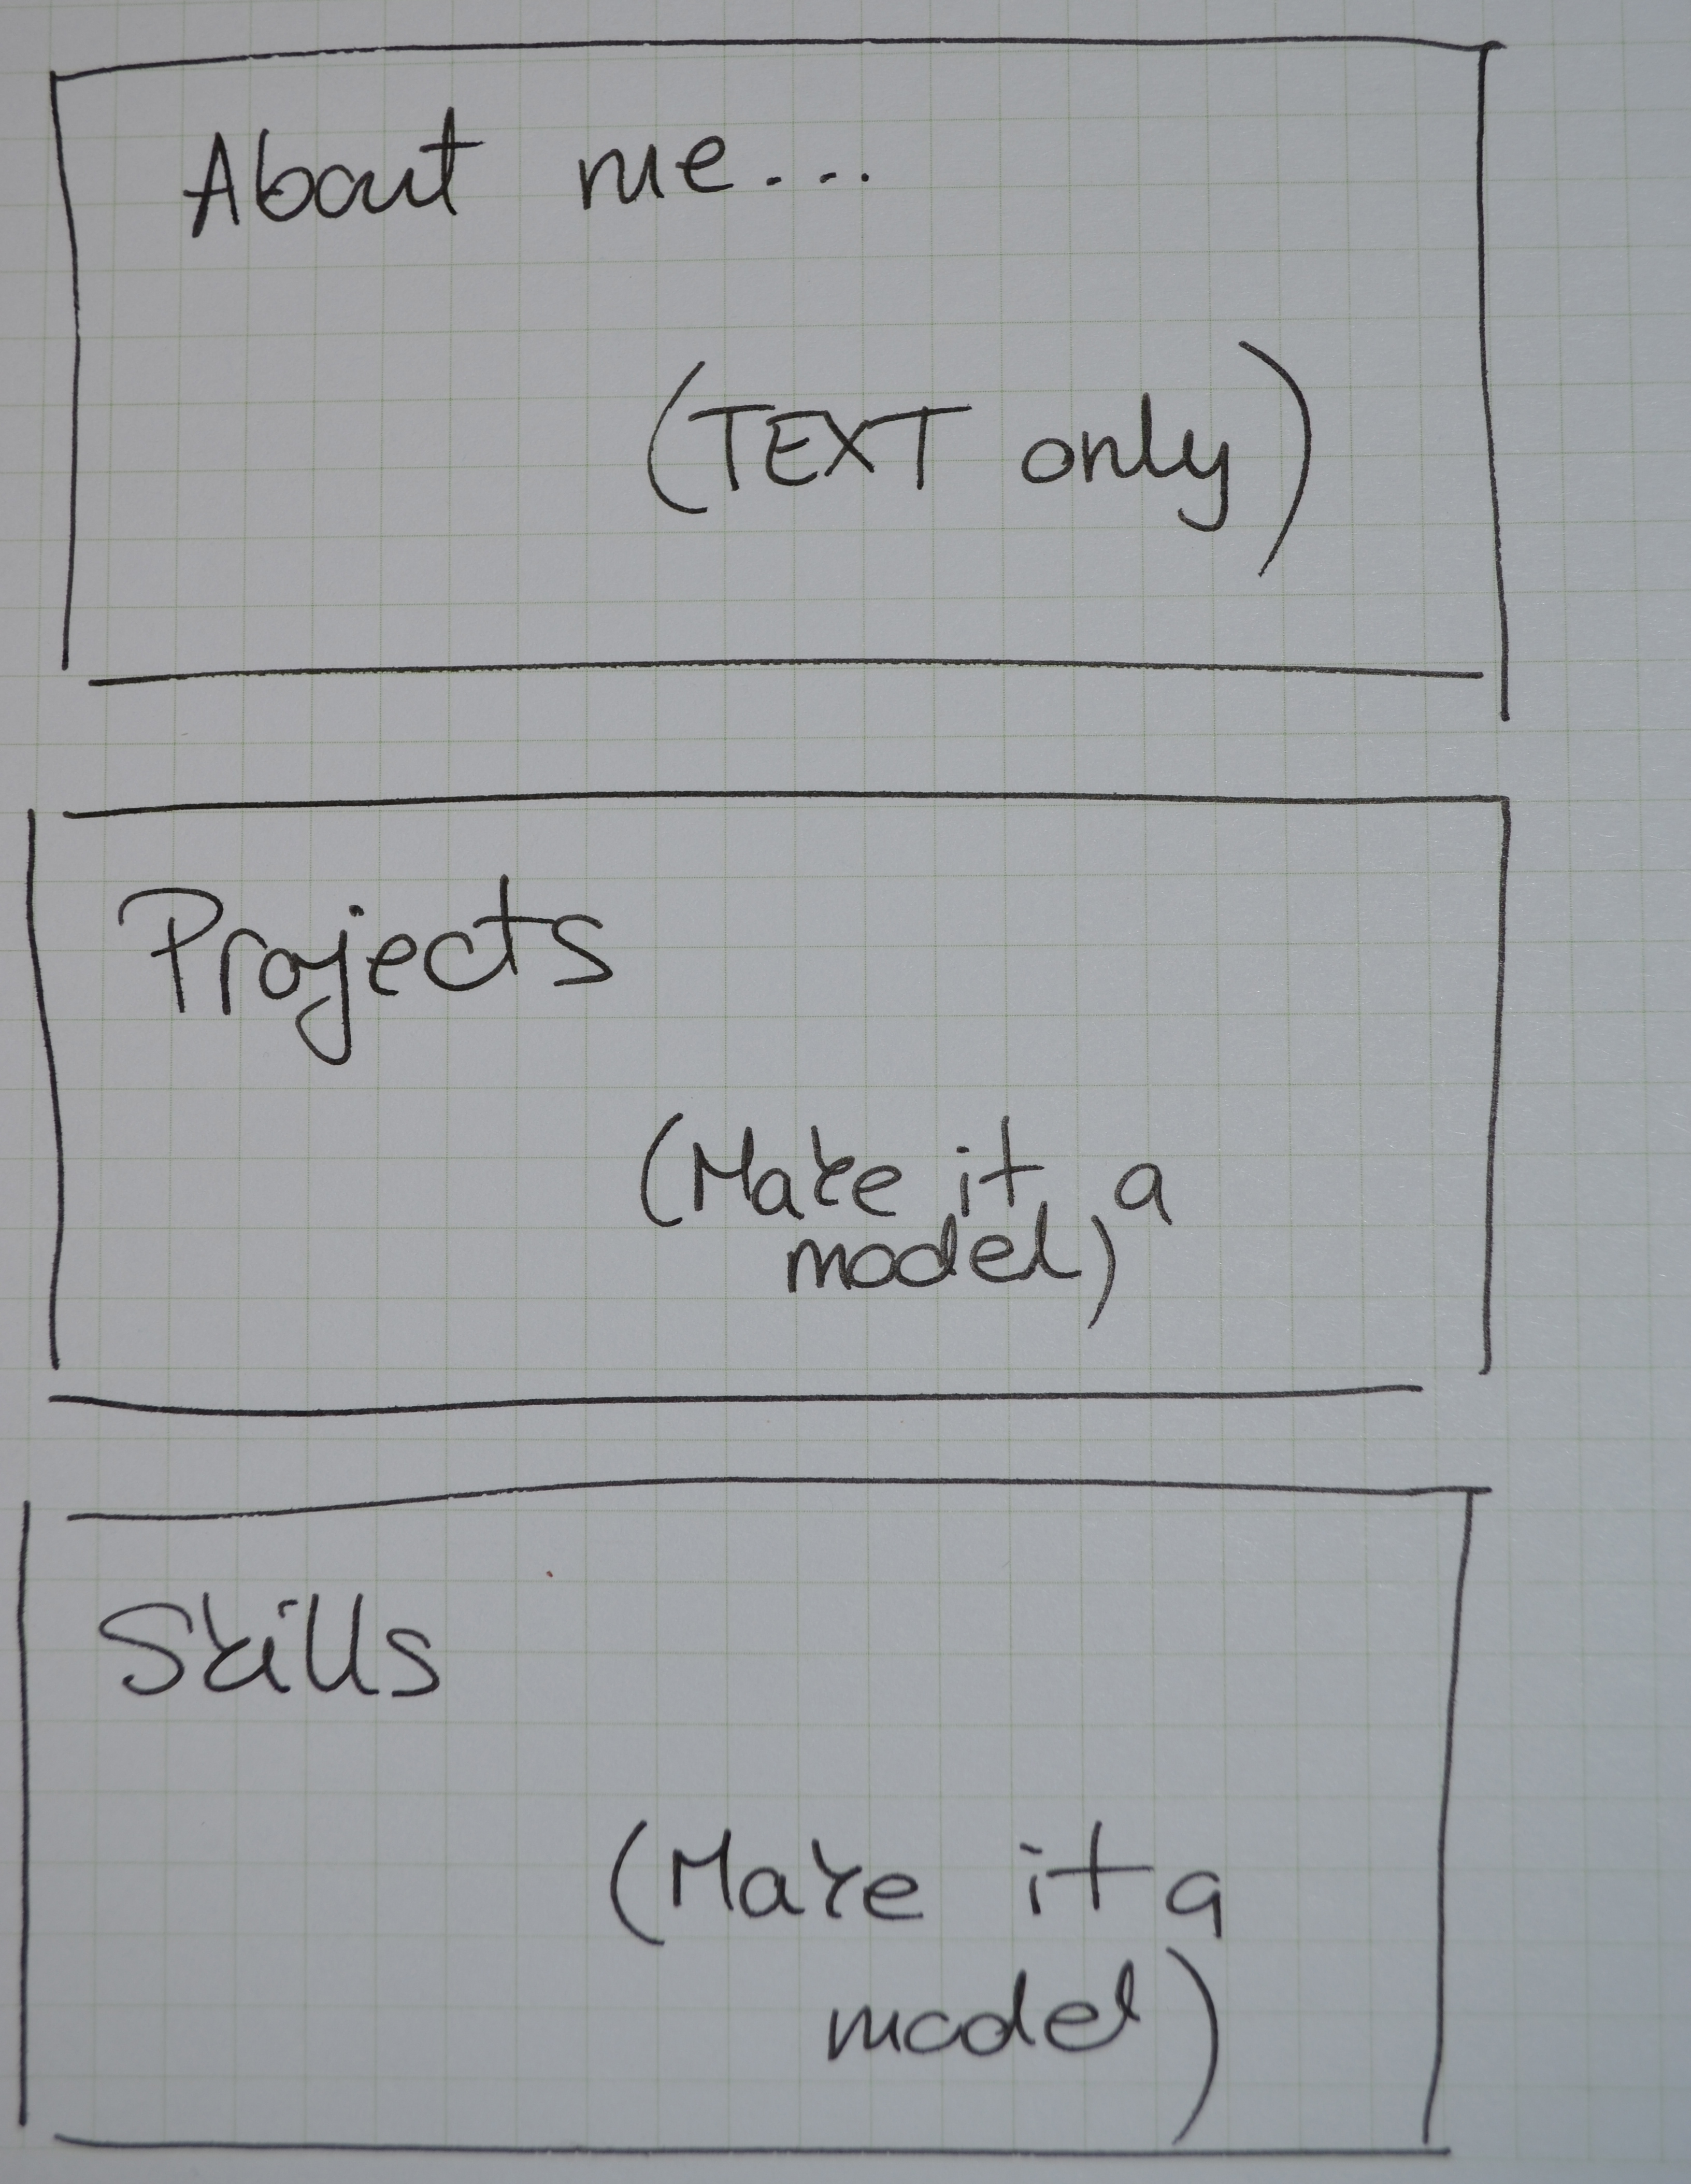 About me...
(TEXT only)
Projects
(Make it a
model)
Skills
(Make it a
model)